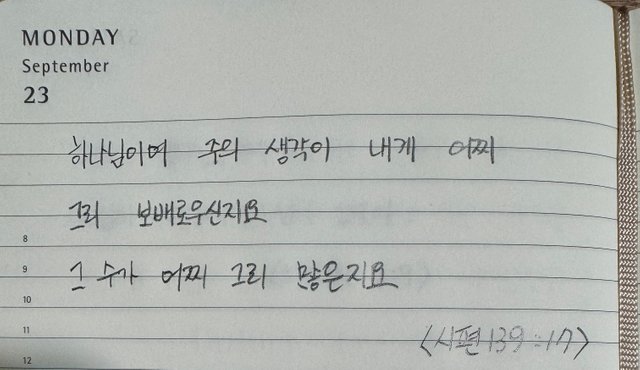 MONDAY
September
23
하나님이여 주의 생각이 내게 어찌
그리 보배로우신지요
8
9 그 수가 어찌 그리 많은지요
10
11
<시편 139:17>
12